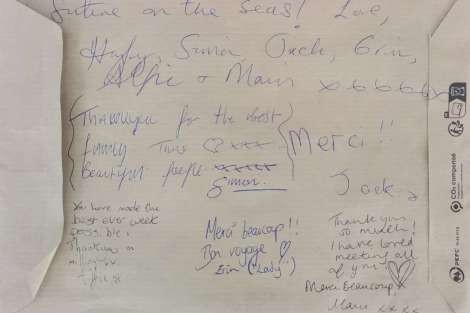 future on the seas! Love,
Simon Jack, Erin,
Alfie + Mairi xxxxxx
Thankyou for the best
funny Time xxx
Beautiful people xxxxx
Simon.
Merci!!
Jack
You have made the
best ever week
possible!
Thankyou
million
Alfie
Merci beaucoup!!
Bon voyage
Erin (Lady!)
Thank you
so much!
I have loved
meeting all
of you
Merci beaucoup!
Mairi xxxx
CO₂ compensé
PEFC